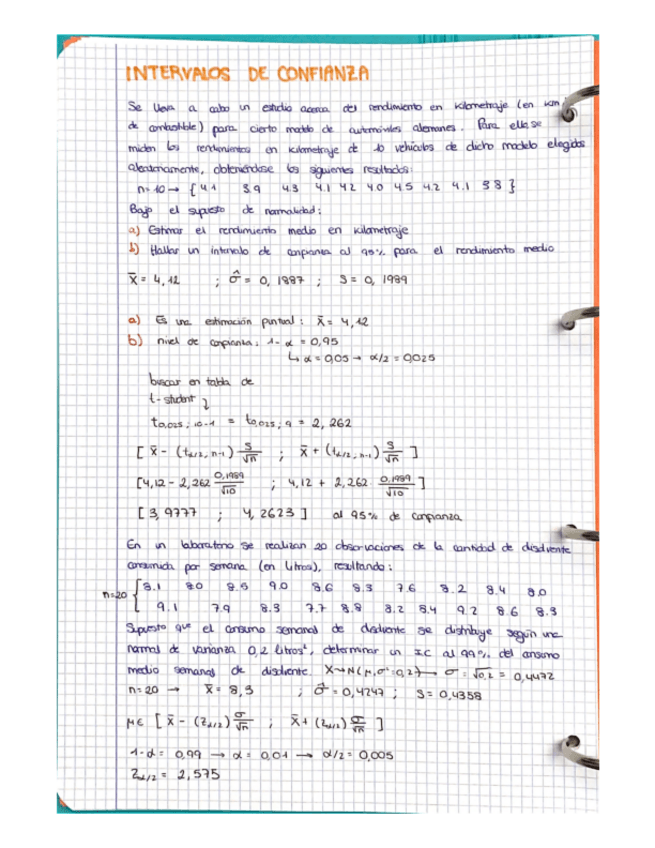 INTERVALOS DE CONFIANZA
Se lleva a cabo un estudio acerca del rendimiento en kilometraje (en km/
de combustible) para cierto modelo de automóviles alemanes. Para ello se
miden los rendimientos en kilometraje de 10 vehículos de dicho modelo elegidos
aleatoriamente, obteniéndose los siguientes resultados:
n=10 → { 4.1 3.9 4.3 4.1 4.2 4.0 4.5 4.2 4.1 3.8 }
Bajo el supuesto de normalidad:
a) Estimar el rendimiento medio en kilometraje
b) Hallar un intervalo de confianza al 95% para el rendimiento medio
x̄ = 4,12 ; σ̂ = 0,1887 ; S = 0,1989
a) Es una estimación puntual: x̄ = 4,12
b) nivel de confianza: 1-α = 0,95
↳ α = 0,05 → α/2 = 0,025
buscar en tabla de
t-student ↴
t0,025; 10-1 = t0,025; 9 = 2,262
[ x̄ - (tα/2, n-1) S/√n ; x̄ + (tα/2, n-1) S/√n ]
[4,12 - 2,262 0,1989/√10 ; 4,12 + 2,262 · 0,1989/√10 ]
[ 3,9777 ; 4,2623 ] al 95% de confianza
En un laboratorio se realizan 20 observaciones de la cantidad de disolvente
consumida por semana (en litros), resultando:
n=20 { 8.1 8.0 8.5 9.0 8.6 8.3 7.6 8.2 8.4 8.0
9.1 7.9 8.3 7.7 8.8 8.2 8.4 9.2 8.6 8.3
Supuesto que el consumo semanal de disolvente se distribuye según una
normal de varianza 0,2 litros², determinar un IC al 99% del consumo
medio semanal de disolvente X→N(μ,σ²=0,2) → σ = √0,2 = 0,4472
n=20 → x̄ = 8,3 ; σ̂ = 0,4247 ; S = 0,4358
μ∈ [ x̄ - (zα/2) σ/√n ; x̄ + (zα/2) σ/√n ]
1-α = 0,99 → α = 0,01 → α/2 = 0,005
Zα/2 = 2,575